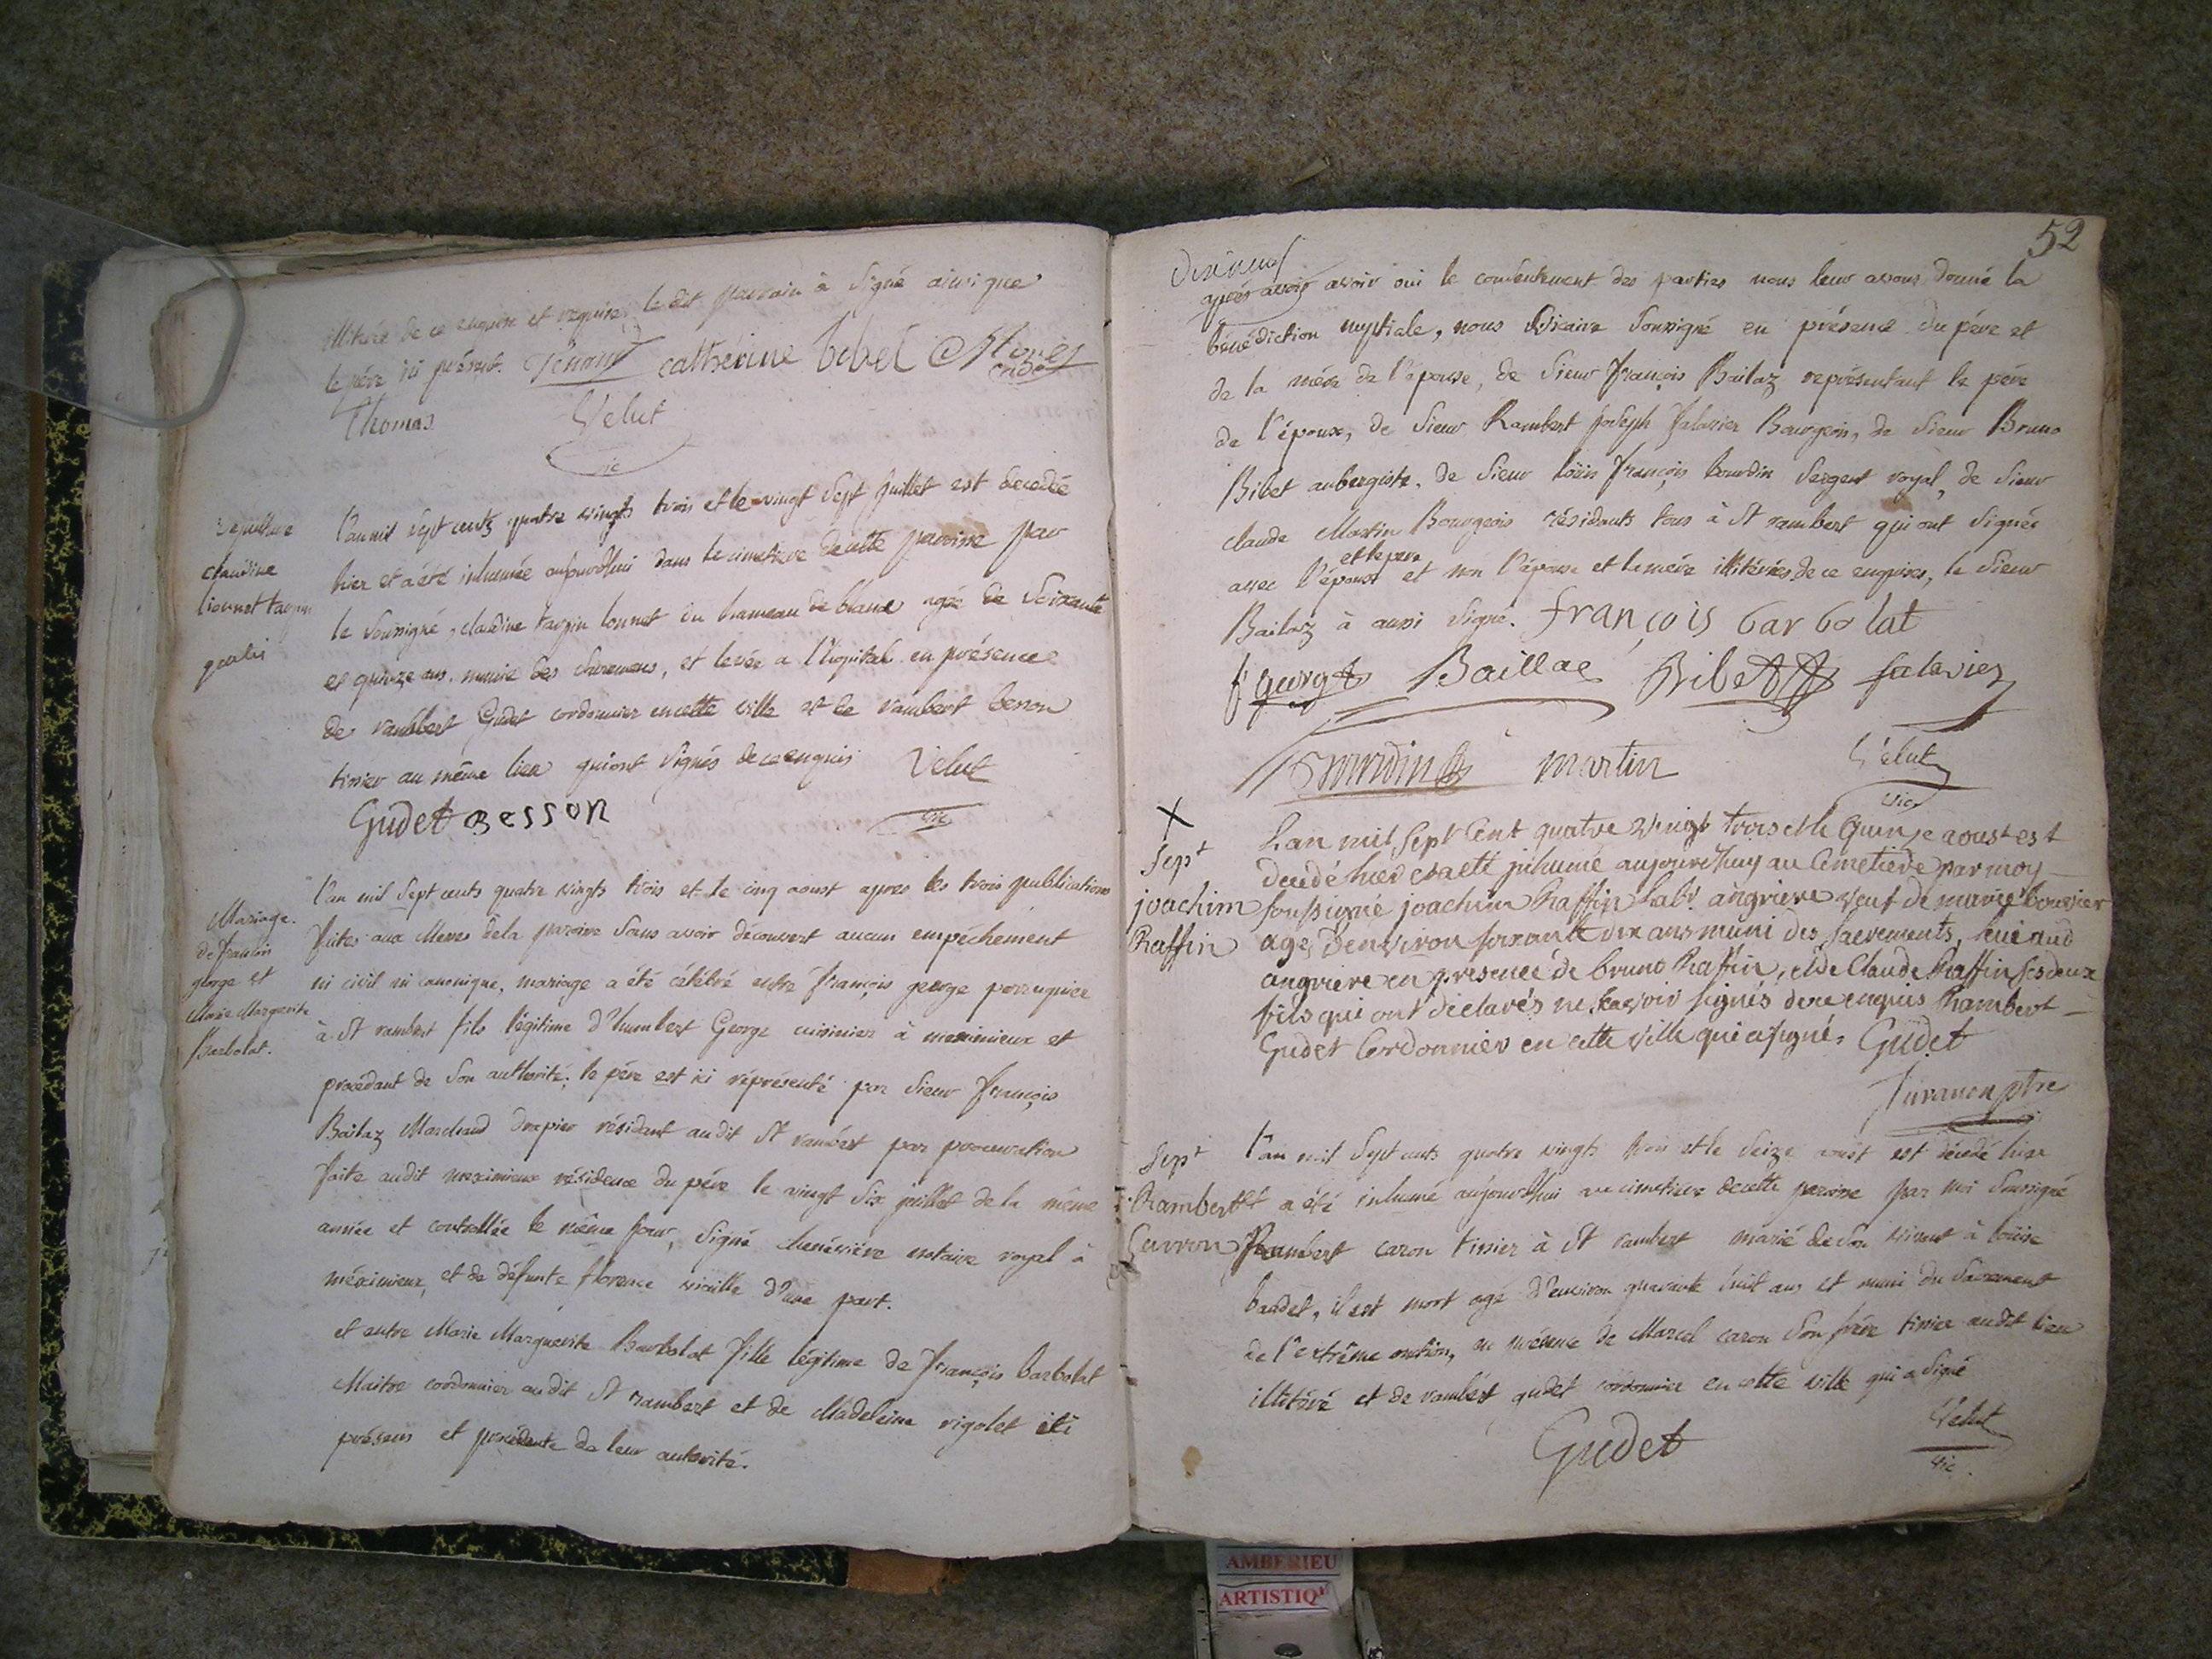 illitérée de ce enquise et requise, le dit parrain à signé ainsi que
le père ici présent. catherine bibet
Thomas Velut
vic
Sepulture
claudine
l'an mil sept cents quatre vingts trois et le vingt sept juillet est decedée
hier et a été inhumée aujourd'hui dans le cimetiere de cette paroisse par
le soussigné, claudine du hameau de blanc agée de soixante
et quinze ans. munie des sacremens, et levée a l'hopital en présence
de rambert Gudet cordonnier en cette ville et de rambert besson
tissier au même lieu qui ont signés de ce enquis Velut
Gudet Besson vic
Mariage.
de françois
george et
Marie Marguerite
Barbolat.
l'an mil sept cents quatre vingts trois et le cinq aoust apres les trois publications
faites aux Messes de la paroisse sans avoir découvert aucun empéchement
ni civil ni canonique, mariage a été célébré entre françois george perruquier
à St rambert fils légitime d'humbert George cuisinier à meximieux et
procédant de son authorité; le père est ici représenté par sieur françois
Bailaz Marchand drapier résidant audit St rambert par procuration
faite audit meximieux résidence du père le vingt six juillet de la même
année et controllée le même jour, signé notaire royal à
méximieux, et de défunte florence d'une part.
et entre Marie Marguerite Barbolat fille légitime de françois barbolat
Maitre cordonnier audit St rambert et de Madeleine rigolet ici
présens et procédante de leur autorité.
52
après avoir avoir oui le consentement des parties nous leur avons donné la
bénédiction nuptiale, nous Vicaire soussigné en présence du père et
de la mére de l'épouse, de sieur françois Bailaz représentant le père
de l'époux, de sieur Rambert joseph falavier Bourgeois, de sieur Bruno
Bibet aubergiste, de sieur loüis françois bourdin sergent royal, de sieur
claude Martin Bourgeois résidants tous à St rambert qui ont signés
et le pere
avec l'époux et non l'épouse et la mére illitérées de ce enquises, le sieur
Bailaz à aussi signé. françois barbolat
f george Baillac Bibet falavier
Bourdin martin Velut
vic
X
Sept
joachim
Raffin
L'an mil sept Cent quatre vingt trois et le quinze aoust est
decedé hier et a eté inhumé aujourd'huy au Cimetiere par moy
soussigné joachim Raffin labr. angriere veuf de marie bouvier
agé d'environ soixante dix ans muni des sacrements,
angriere en presence de bruno Raffin, et de Claude Raffin ses deux
fils qui ont déclarés ne scavoir signés de ce enquis Rambert
Gudet Cordonnier en cette ville qui a signé. Gudet
Juvanon ptre
Sept
Rambert
Carron
l'an mil sept cents quatre vingts trois et le seize août est décédé hier
et a été inhumé aujourd'hui au cimetiere de cette paroisse par moi soussigné
Rambert caron tissier à St rambert marié de son vivant à loüise
baudet, il est mort agé d'environ quarante huit ans et muni du sacrement
de l'extrême onction, en présence de Marcel caron son frère tissier audit lieu
illitéré et de rambert gudet cordonnier en cette ville qui a signé
Gudet Velut
vic.
AMBERIEU
ARTISTIQ